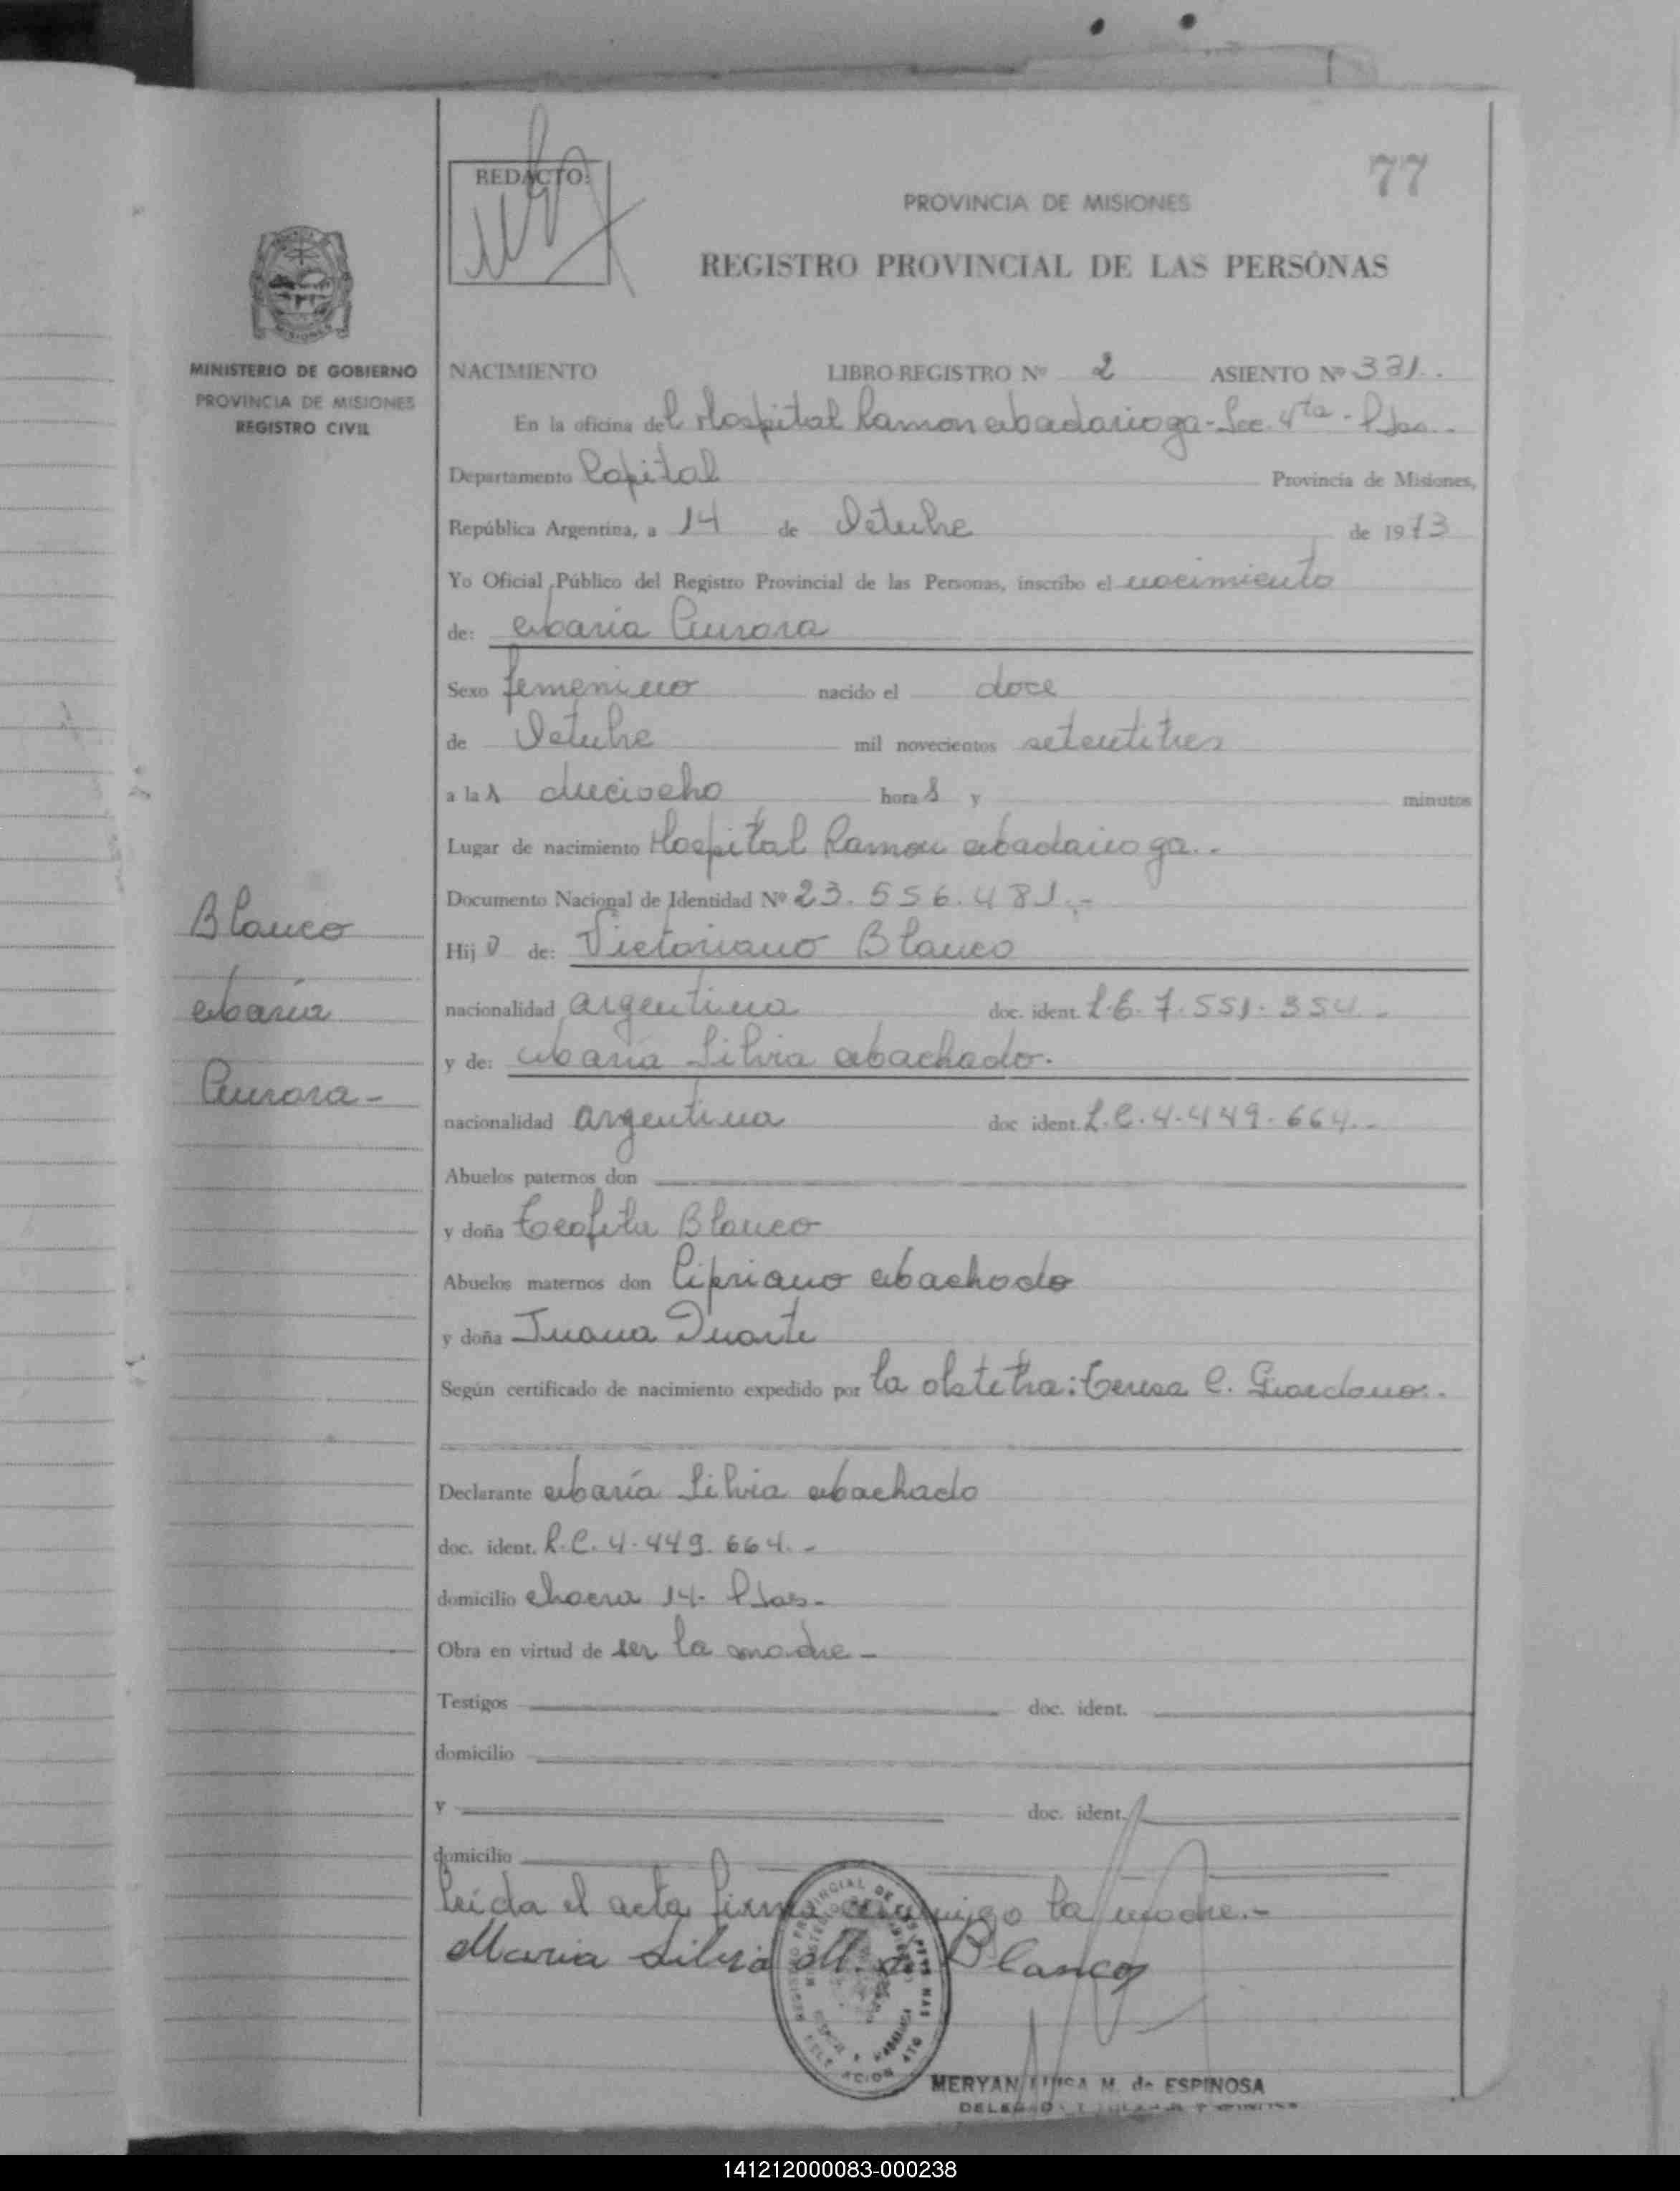 77
REDACTO:
PROVINCIA DE MISIONES
REGISTRO PROVINCIAL DE LAS PERSONAS
MINISTERIO DE GOBIERNO
PROVINCIA DE MISIONES
REGISTRO CIVIL
NACIMIENTO LIBRO REGISTRO Nº 2 ASIENTO Nº 331.
En la oficina del Hospital Ramon Madariaga - Sec. 4ta - Pdas.
Departamento Capital Provincia de Misiones,
República Argentina, a 14 de Octubre de 1973
Yo Oficial Público del Registro Provincial de las Personas, inscribo el nacimiento
de: María Aurora
Sexo femenino nacido el doce
de Octubre mil novecientos setentitres
a las dieciocho horas y minutos
Lugar de nacimiento Hospital Ramon Madariaga.-
Documento Nacional de Identidad Nº 23.556.481.-
Blanco
María
Aurora-
Hij de: Victoriano Blanco
nacionalidad argentina doc. ident. L.E. 7.551.354.-
y de: María Silvia Machado.
nacionalidad argentina doc ident. L.C. 4.449.664.-
Abuelos paternos don
y doña Teofila Blanco
Abuelos maternos don Cipriano Machado
y doña Juana Duarte
Según certificado de nacimiento expedido por la obstetra: Teresa C. Giordano.
Declarante María Silvia Machado
doc. ident. L.C. 4.449.664.-
domicilio chacra 14. Pdas.-
Obra en virtud de ser la madre-
Testigos doc. ident.
domicilio
y doc. ident.
domicilio
Leída el acta firma conmigo la madre.-
Maria Silvia M. de Blanco
MERYAN M. de ESPINOSA
141212000083-000238